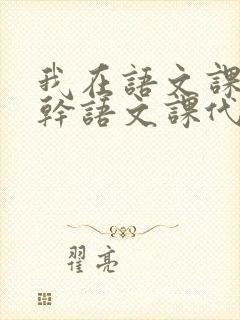 我在語文課
幹語文課代
翟亮